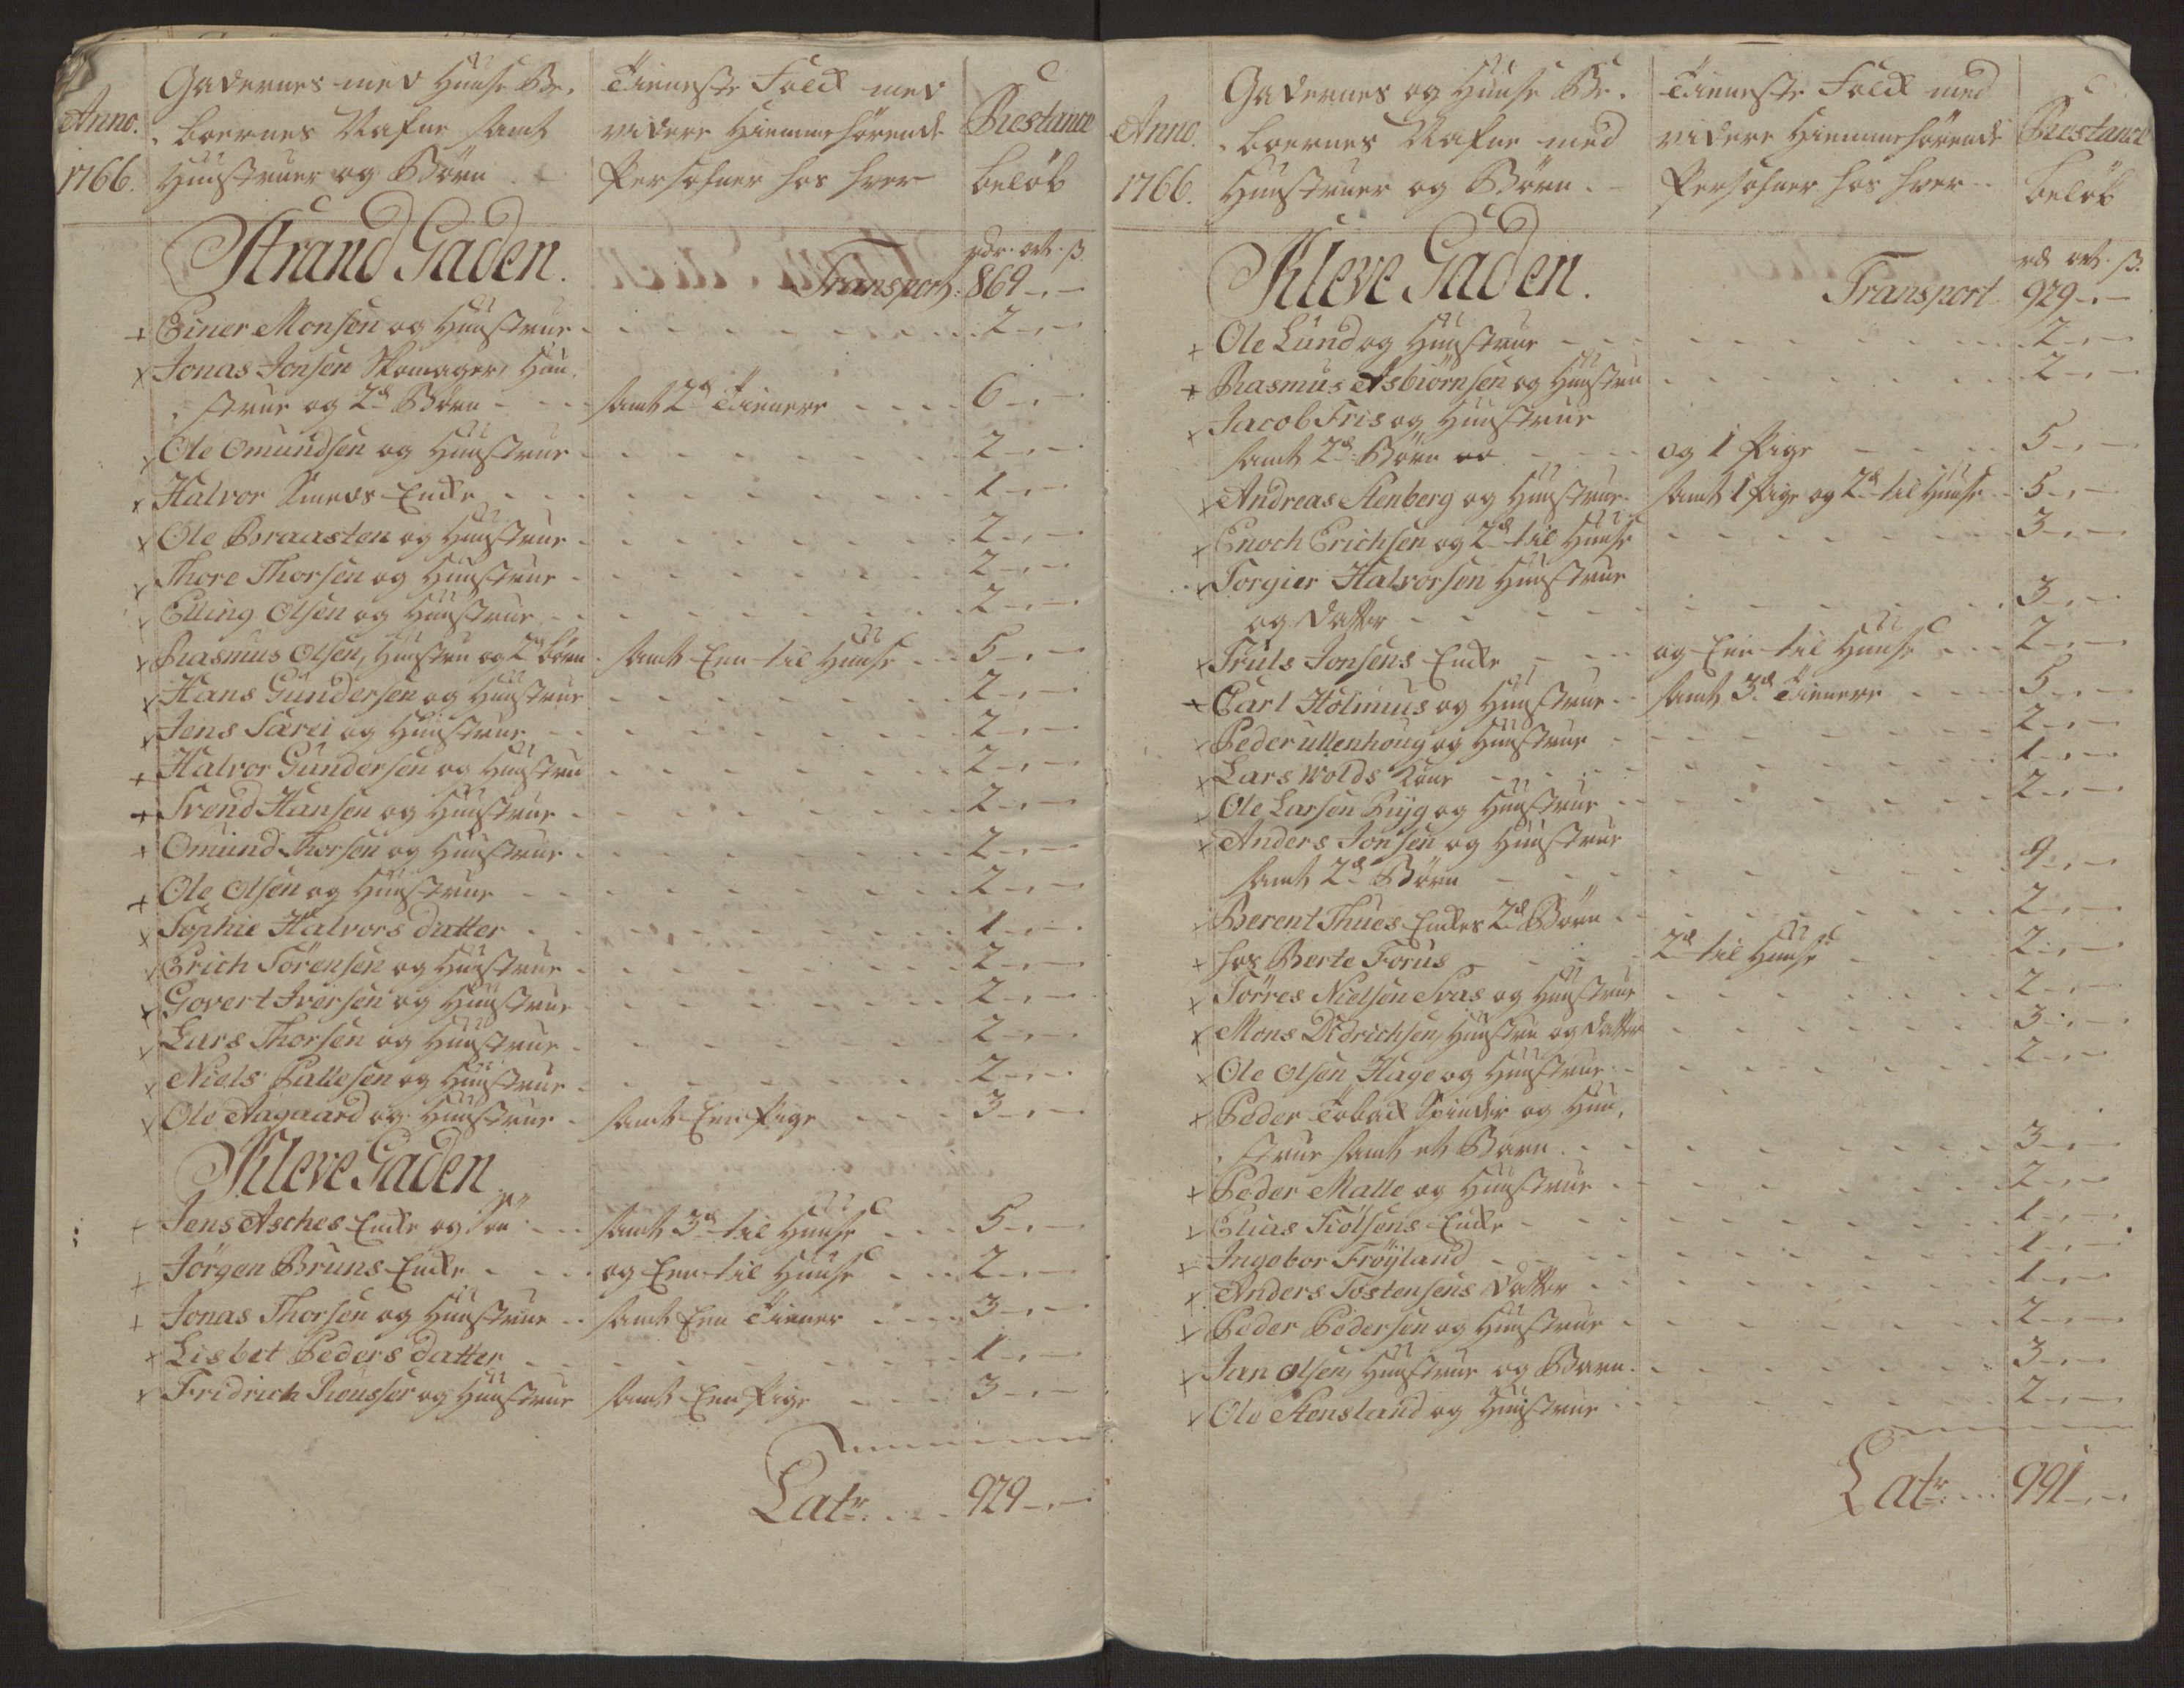 Anno.
1766.
Gadernes med Huuse Be-
boernes Nafne samt
Hustruer og Börn
Tieneste Folck med
videre Hiemmehörende
Persohner hos hver
Restance
belöb
Strand Gaden.
rdr. ort. ß
Transport. 869 - . -
+ Einer Monsen og Huustrue 2 - . -
x Jonas Jonsen Skomager, Huu-
strue og 2de Börn samt 2de Tienere 6 - . -
x Ole Omundsen og Huustrue 2 - . -
x Halvor Smeds Encke 1 - . -
x Ole Braasten og Huustrue 2 - . -
x Thore Thorsen og Huustrue 2 - . -
x Elling Olsen og Huustrue 2 - . -
x Rasmus Olsen, Huustru og 2de börn samt Een til Huuse 5 - . -
x Hans Gundersen og Huustrue 2 - . -
x Jens Sarei og Huustrue 2 - . -
+ Halvor Gundersen og Huustru 2 - . -
+ Svend Hansen og Huustrue 2 - . -
+ Omund Thorsen og Huustrue 2 - . -
+ Ole Olsen og Huustrue 2 - . -
x Sophie Halvors datter 1 - . -
x Erich Sörensen og Huustrue 2 - . -
x Govert Iversen og Huustrue 2 - . -
x Lars Thorsen og Huustrue 2 - . -
x Niels Pallesen og Huustrue 2 - . -
x Ole Aagaard og Huustrue samt Een Pige 3 - . -
Kleve Gaden
+ Jens Asches Encke og Sön samt 3de til Huuse 5 - . -
+ Jörgen Bruns Encke og Een til Huuse 2 - . -
+ Jonas Thorsen og Huustrue samt Een Tiener 3 - . -
x Lisbet Peders datter 1 - . -
x Fridrich Reusser og Huustrue samt Een Pige 3 - . -
Latr. 929 - . -
Anno.
1766.
Gadernes og Huuse Be-
boernes Nafne med
Hustruer og Börn
Tieneste Folck med
videre Hiemmehörende
Persohner hos hver
Restance
belöb
Kleve Gaden.
rd ort. ß.
Transport 929 - . -
x Ole Lund og Huustrue 2 - . -
+ Rasmus Asbiörnsen og Huustru 2 - . -
x Jacob Fris og Huustrue
samt 2de Börn og 1 Pige 5 - . -
x Andreas Stenberg og Huustrue samt 1 Pige og 2de til Huuse 5 - . -
x Enoch Erichsen og 2de til Huuse 3 - . -
x Torgier Halvorsen Huustrue
og Datter 3 - . -
x Truls Jonsens Encke og Een til Huuse 2 - . -
+ Carl Holmius og Huustrue samt 3de Tienere 5 - . -
x Peder Ullenhoug og Huustrue 2 - . -
x Lars Wolds Kone 1 - . -
x Ole Larsen Ryg og Huustrue 2 - . -
x Anders Jonsen og Huustrue
samt 2de Börn 4 - . -
Berent Thues Enckes 2de Börn 2 - . -
+ hos Berte Forus 2de til Huuse 2 - . -
x Törres Nielsen Svas og Huustrue 2 - . -
x Mons Didrichsen, Huustru og Datter 3 - . -
x Ole Olsen Hage og Huustrue 2 - . -
x Peder Toback Spinder og Huu-
strue samt et Barn 3 - . -
+ Peder Malle og Huustrue 2 - . -
x Elias Tiölsens Encke 1 - . -
x Ingebor Fröyland 1 - . -
x Anders Tostensens Datter 1 - . -
x Peder Pedersen og Huustrue 2 - . -
x Jan Olsen, Huustrue og Barn 3 - . -
x Ole Stensland og Huustrue 2 - . -
Latr. 991 - . -